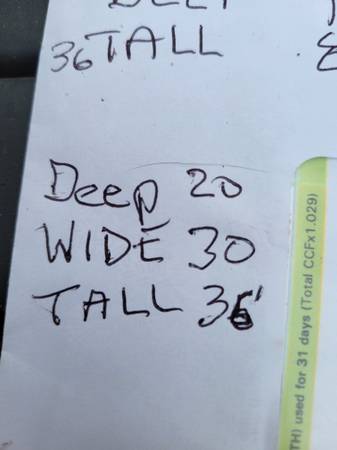 36 TALL
Deep 20
WIDE 30
TALL 36
TH) used for 31 days (Total CCFx1.029)